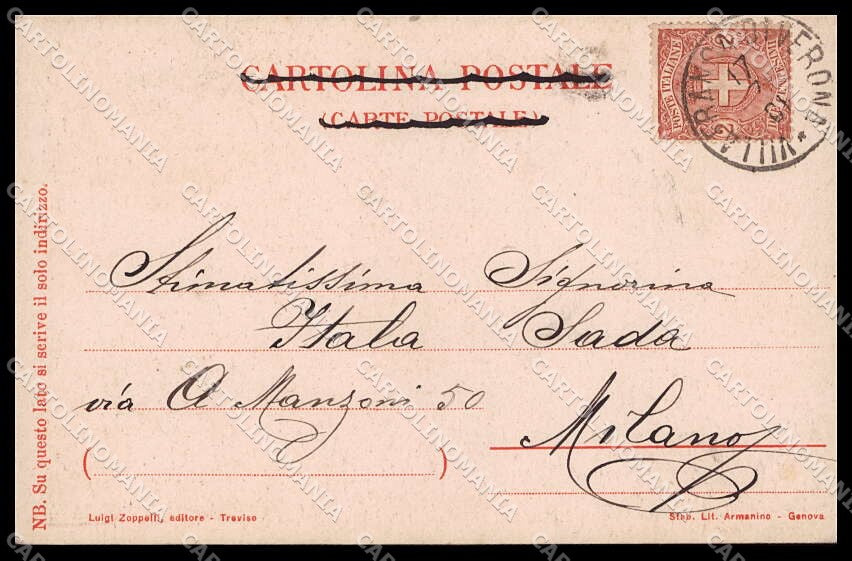 CARTOLINA POSTALE
(CARTE POSTALE)
POSTE ITALIANE
VILLAFRANCA DI VERONA
17
NB. Su questo lato si scrive il solo indirizzo.
Stimatissima Signorina
Itala Sada
via A Manzoni 50
Milano
Luigi Zoppelli, editore - Treviso
Stab. Lit. Armanino - Genova
CARTOLINOMANIA